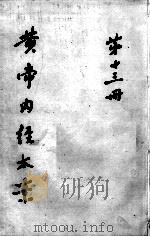 第十三册
黄帝内经太素
研狗
mtoou.info